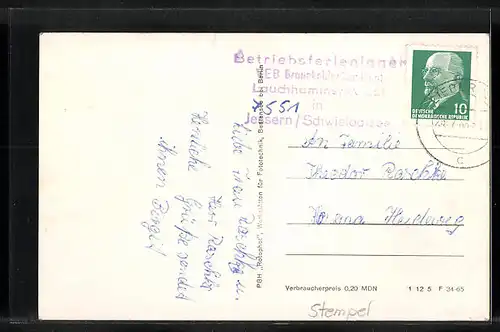 Betriebsferienlager
VEB
Lauchhammer
in
Jessern/Schwielochsee
7551
10
DEUTSCHE
DEMOKRATISCHE REPUBLIK
An Familie
Theodor Raschke
Heideweg
Liebe Frau Raschke u.
Herr Raschke
Herzliche Grüße sendet
Ihnen Bergit
PGH „Rotophot", Werkstätten für Fototechnik, Bestensee bei Berlin
Verbraucherpreis 0,20 MDN
1 12 5 F 34-65
Stempel